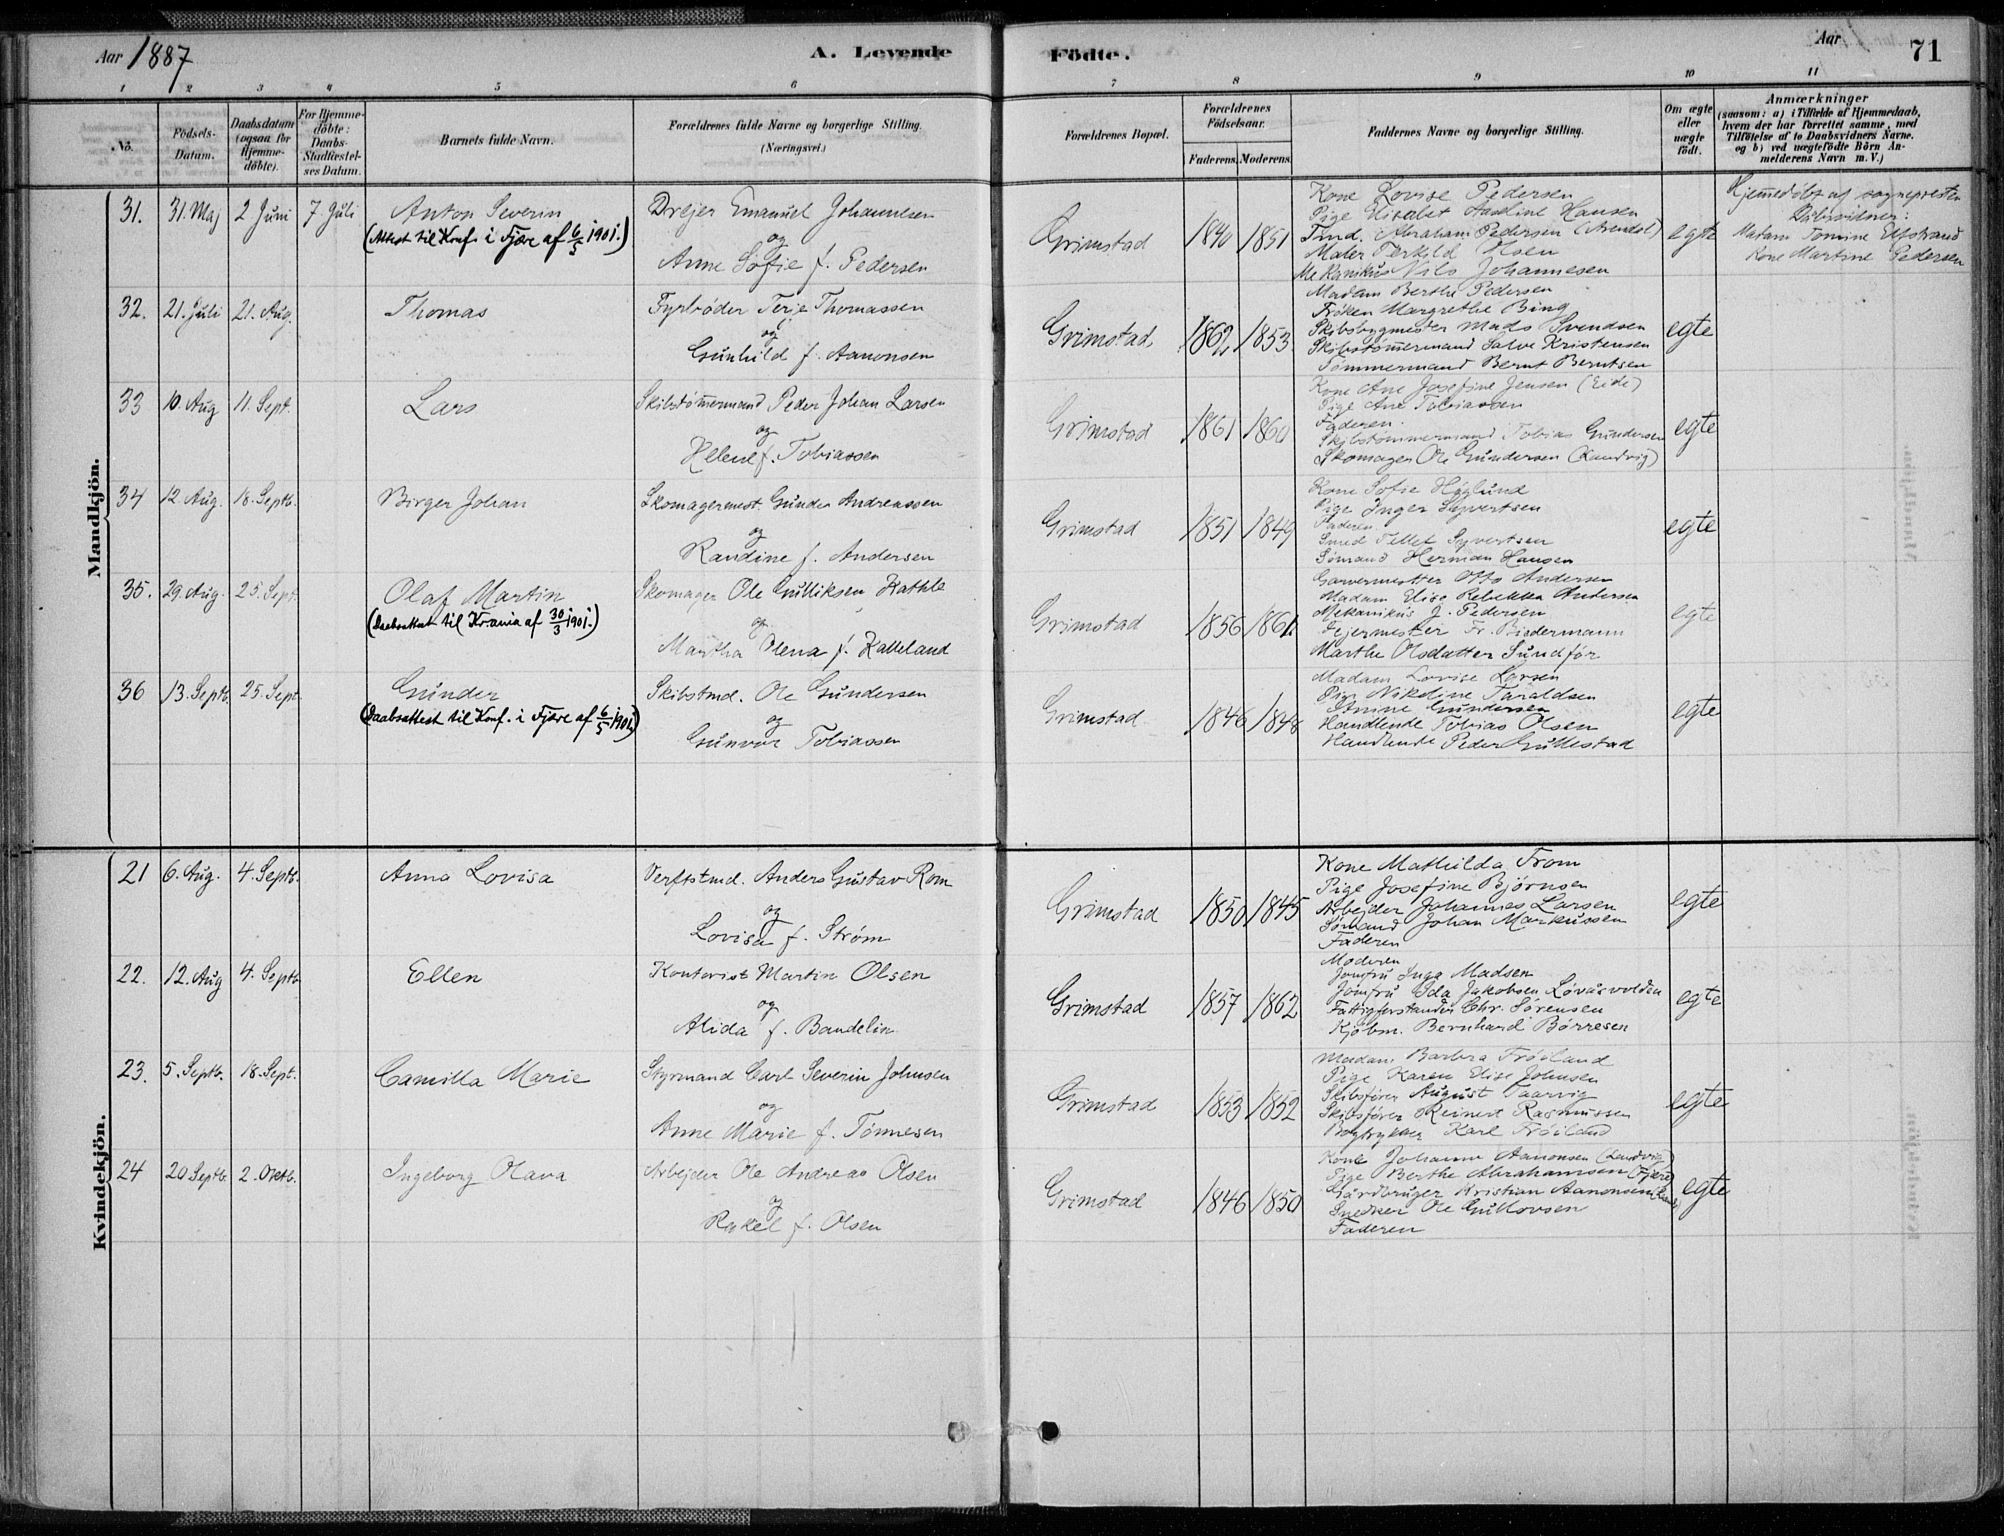 Aar 1887 A. Levende Födte. Aar 71
1 2 3 4 5 6 7 8 9 10 11
No. Födsels-Datum. Daabsdatum (ogsaa for Hjemmedöbte). For Hjemmedöbte: Daabs-Stadfæstelses Datum. Barnets fulde Navn. Forældrenes fulde Navne og borgerlige Stilling. (Næringsvei.) Forældrenes Bopæl. Forældrenes Födselsaar. Faderens. Moderens. Faddernes Navne og borgerlige Stilling. Om ægte eller uægte födt. Anmærkninger (saasom: a) i Tilfælde af Hjemmedaab, hvem der har forrettet samme, med Tilföielse af to Daabsvidners Navne. og b) ved uægtefödte Börn Anmelderens Navn m. V.)
Mandkjön.
31. 31. Maj 2 Juni 7 Juli Anton Severin
(Attest til Konf. i Fjære af 6/5 1901.)
Drejer Emanuel Johannesen
og
Anne Sofie f. Pedersen
Grimstad 1840 1851
Kone Lovise Pedersen
Pige Elisabet Hansen
Tmd. Abraham Pedersen (Arendal)
Maler Terkild Olsen
Mekanikus Nils Johannesen
egte
Hjemedöbt af sognepresten
Madam Tomine
Kone Martine Pedersen
32. 21. Juli 21. Aug. Thomas
Fyrbøder Terje Thomassen
og
Gunhild f. Aanonsen
Grimstad 1862 1853
Madam Berthe Pedersen
Frøken Margrethe Bing
Skibsbygmester Mads Svendsen
Skibstømermand Salve Kristensen
Tømmermand Bernt Berntsen
egte
33 10. Aug 11. Sept. Lars
Skibstømermand Peder Johan Larsen
og
Helene f. Tobiassen
Grimstad 1861 1860
Kone Ane Josefine Jensen (Eide)
Pige Ane Tobiassen
Faderen.
Skibstømmermand Tobias Gundersen
Skomager Ole Gundersen (Landvig)
egte
34 12. Aug. 18. Septb. Birger Johan
Skomagermest. Gunder Andreassen
og
Randine f. Andersen
Grimstad 1851 1849
Kone Sofie Höglund
Pige Inger Syvertsen
Faderen.
Smed Tellef Syvertsen
Sømand Herman Hansen
egte
35. 29. Aug. 25. Sept. Olaf Martin
(Daabsattest til Kr.ania af 30/3 1901.)
Skomager Ole Gulliksen
og
Martha Olena f. Kalleland
Grimstad 1856 1861.
Garvermester Otto Andersen
Madam Elise Rebekka Andersen
Mekanikus J. Pedersen
Fejermester Fr. Biedermann
Marthe Olsdatter Sundför
egte
36 13. Septb. 25. Sept. Gunder
(Daabsattest til Konf. i Fjære af 6/5 1901.)
Skibstmd. Ole Gundersen
og
Gunvor Tobiassen
Grimstad 1846 1848
Madam Lovise Larsen
Pige Nikoline Taraldsen
Anine Gundersen
Handlende Tobias Olsen
Handlende Peder Gullestad
egte
Kvindekjön.
21 6. Aug. 4. Septb. Anna Lovisa
Verftstmd. Anders Gustav Rom
og
Lovisa f. Strøm
Grimstad 1850 1845
Kone Mathilda From
Pige Josefine Bjørnsen
Arbejder Johannes Larsen
Sømand Johan Markussen
Faderen
egte
22. 12. Aug 4. Septb. Ellen
Kontorist Martin Olsen
og
Alida f. Bandelin
Grimstad 1857 1862
Moderen
Jomfru Inga Madsen
Jomfru Ida Jakobsen Løvåsvolden
Fattigforstander Chr. Sørensen
Kjøbm. Bernhard Børresen
egte
23. 5. Septb. 18. Sept. Camilla Marie
Styrmand Carl Severin Johnsen
og
Anne Marie f. Tønnesen
Grimstad 1853 1852
Madam Barbra Frøiland
Pige Karen Elise Johnsen
Skibsfører August Taarvig
Skibsfører Reinert Rasmussen
Bogtrykker Karl Frøiland
egte
24 20 Septb. 2. Oktb. Ingeborg Olava
Arbejder Ole Andreas Olsen
og
Rakel f. Olsen
Grimstad 1846 1850
Kone Johanne Aanonsen (Landvig)
Pige Berthe Abrahamsen (Fjære)
Gårdbruger Kristian Aanonsen
Snedker Ole Gullovsen
Faderen
egte